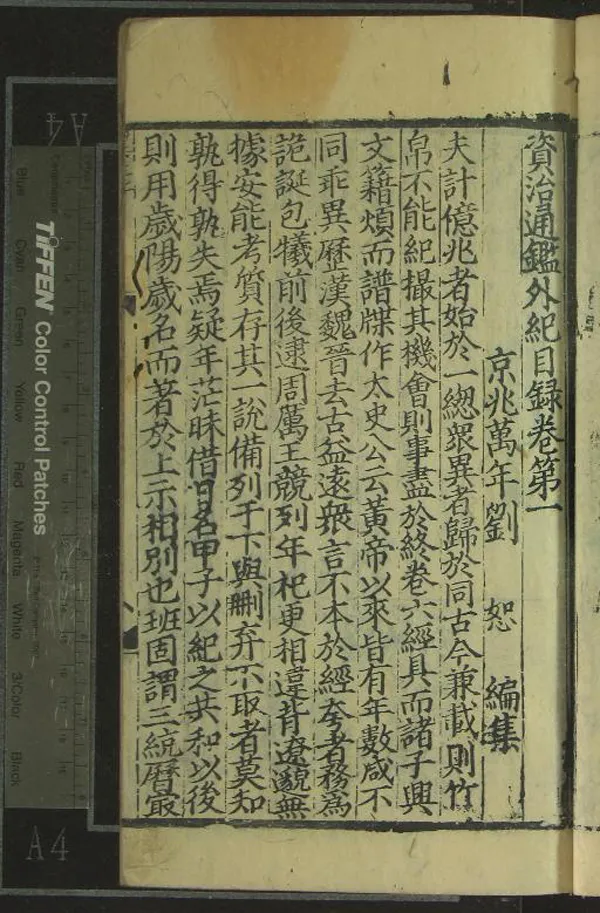 資治通鑑外紀目録卷第一
京兆萬年劉 恕 編集
夫計億兆者始於一緫衆異者歸於同古今兼載則竹
帛不能紀撮其機會則事盡於終卷六經具而諸子興
文籍煩而譜牒作太史公云黃帝以來皆有年數咸不
同乖異歷漢魏晉去古益逺衆言不本於經夸者務爲
詭誕包犧前後逮周厲王競列年祀更相違背遼邈無
據安能考質存其一說備列于下與刪弃不取者莫知
孰得孰失焉疑年茫昧借日名甲子以紀之共和以後
則用歲陽歲名而著於上示相別也班固謂三統曆最
TIFFEN Color Control Patches
Blue Cyan Green Yellow Red Magenta White 3/Color Black
A4
A4